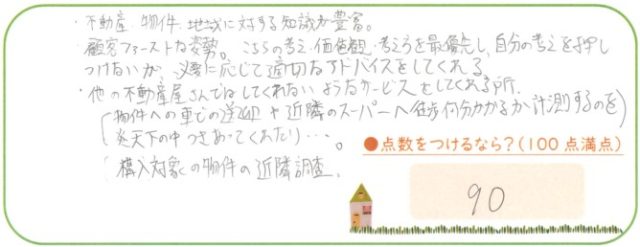 ・不動産、物件、地域に対する知識が豊富。
・顧客ファーストな姿勢。こちらの考え・価値観・考え方を最優先し、自分の考えを押し
つけないが、必要に応じて適切なアドバイスをしてくれる
・他の不動産屋さんではしてくれないようなサービスをしてくれる所。
(物件への車での送迎や近隣のスーパーへ徒歩何分かかるか計測するのを)
(炎天下の中つきあってくれたり・・・。
(購入対象の物件の近隣調査。
●点数をつけるなら?(100点満点)
90